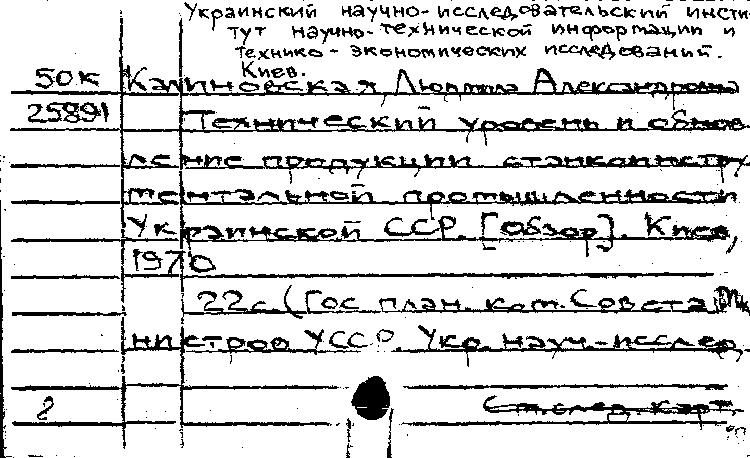 Украинский научно-исследовательский инсти-
тут научно-технической информации и
технико-экономических исследований.
Киев.
50к Калиновская, Людмила Александровна
25891 Технический уровень и обнов
ление продукции станкоинстру
ментальной промышленности
Украинской ССР. [Обзор]. Киев,
1970
22с. (Гос план. ком. Совета Ми
нистров УССР. Укр. науч.-исслед.
См. след. карт.